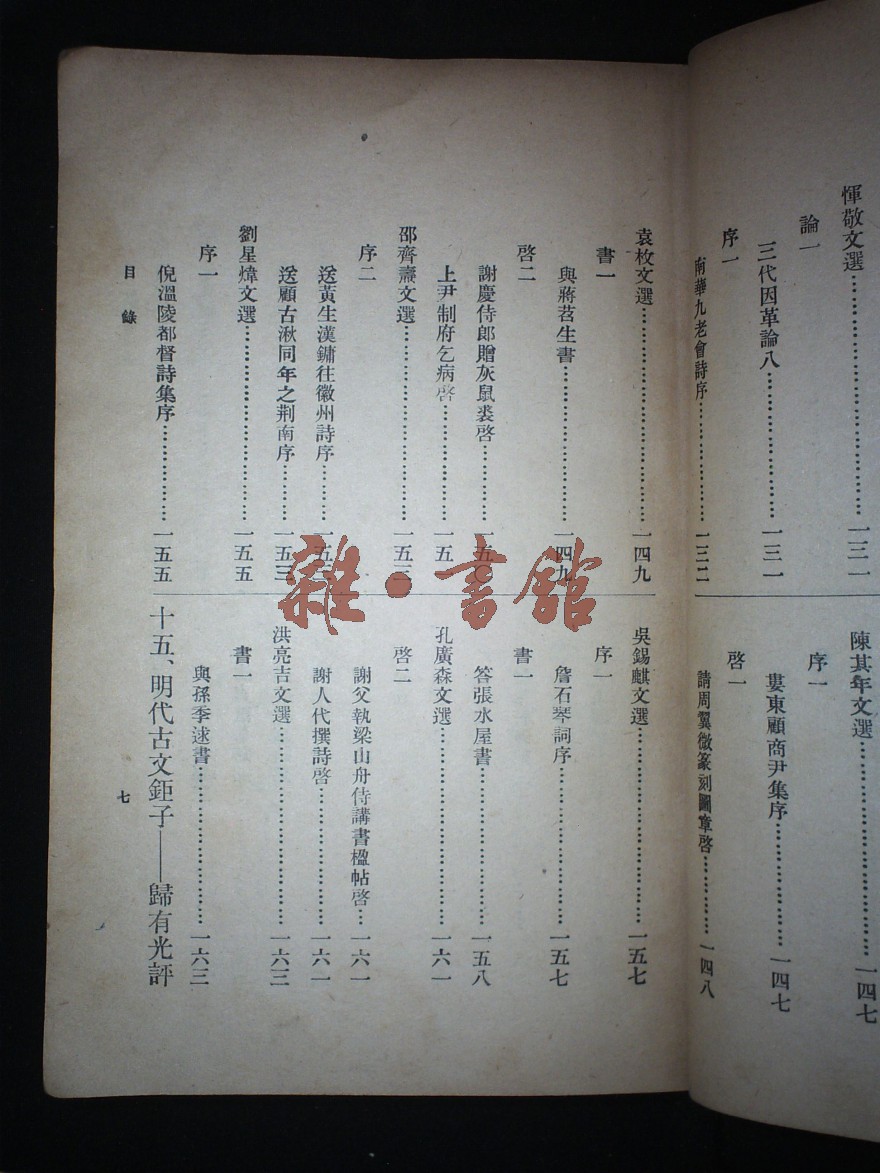 惲敬文選……一三一
論一
三代因革論八……一三一
序一
南華九老會詩序……一三二
陳其年文選……一四七
序一
婁東顧商尹集序……一四七
啓一
請周翼微篆刻圖章啓……一四八
袁枚文選……一四九
書一
與蔣苕生書……一四九
啓二
謝慶侍郎贈灰鼠裘啓……一五〇
上尹制府乞病啓……一五一
邵齊燾文選……一五三
序二
送黃生漢鏞往徽州詩序……一五三
送顧古湫同年之荆南序……一五三
劉星煒文選……一五五
序一
倪溫陵都督詩集序……一五五
吳錫麒文選……一五七
序一
詹石琴詞序……一五七
書一
答張水屋書……一五八
孔廣森文選……一六一
啓二
謝父執梁山舟侍講書楹帖啓……一六一
謝人代撰詩啓……一六一
洪亮吉文選……一六三
書一
與孫季逑書……一六三
十五、明代古文鉅子——歸有光評
目錄
七
雜·書館